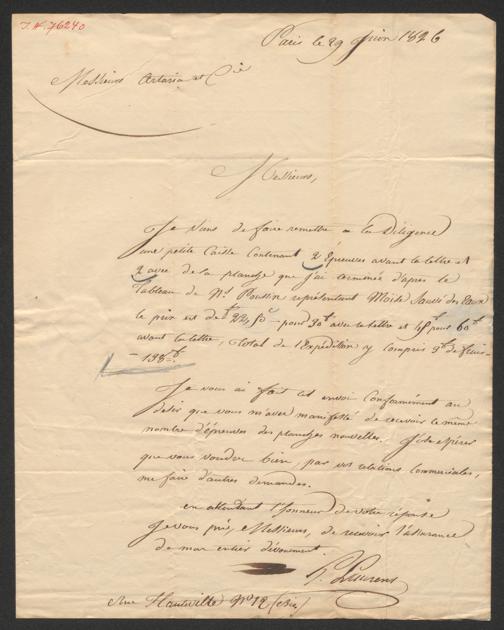 I.N. 76240
Paris le 29 Juin 1826
Messieurs Artaria et Cie
Messieurs,
Je viens de faire remettre a la Diligence
une petite Caisse contenant 2 Epreuves avant la lettre et
2 avec de la planche que j'ai terminée d'après le
Tableau de Ns. Poussin représentant Moïse Sauvé des Eaux
le prix est de pour 30f avec la lettre et pour 60f
avant la lettre, Total de l'Expédition y compris 9f de frais
198f.
Je vous ai fait cet envoi conformément au
desir que vous m'avez manifesté de recevoir le même
nombre d'épreuves des planches nouvelles. J'ose espérer
que vous voudrez bien, par vos relations commerciales,
me faire d'autres demandes.
en attendant l'honneur de votre réponse
Je vous prie, Messieurs, de recevoir l'assurance
de mon entier dévouement.
Laurens
Rue Hauteville No. 12